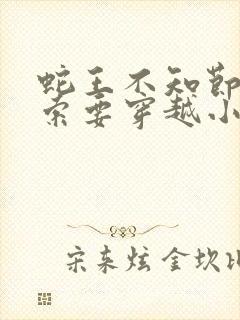 蛇王不知节
索要穿越小
宋来炫金坎比